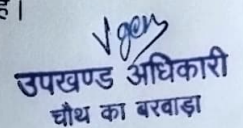 है।
उपखण्ड अधिकारी
चौथ का बरवाड़ा